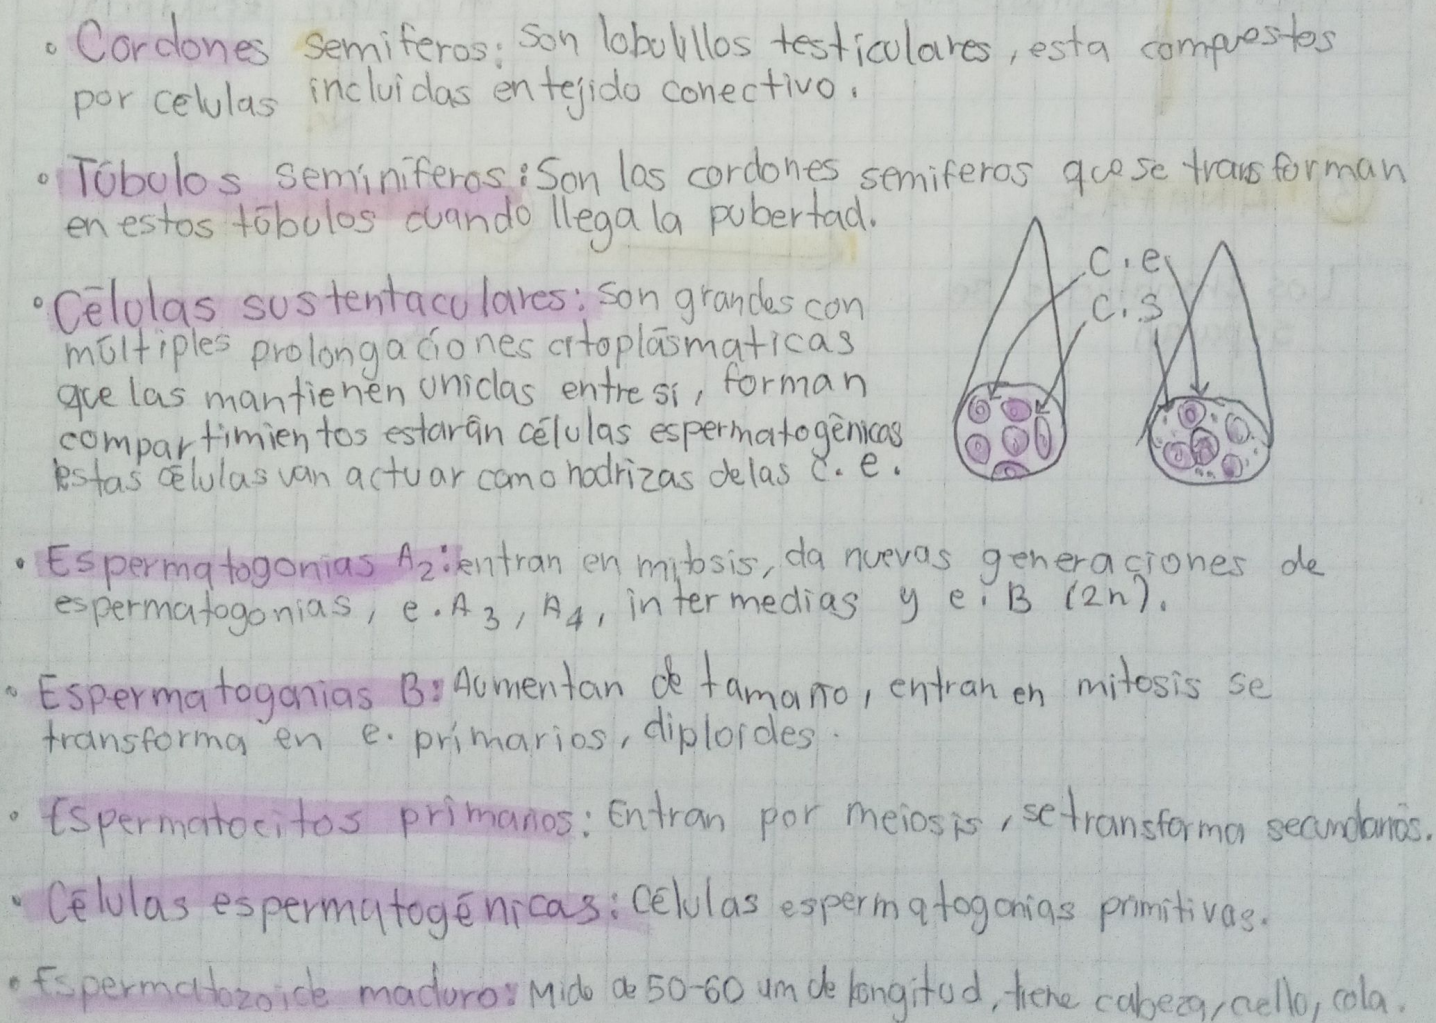 • Cordones semiferos: Son lobulillos testiculares, esta compuestos
por celulas incluidas en tejido conectivo.
• Túbulos seminíferos: Son los cordones semiferos que se transforman
en estos túbulos cuando llega la pubertad.
• Células sustentaculares: Son grandes con
múltiples prolongaciones citoplásmaticas
que las mantienen unidas entre sí, forman
compartimientos estarán células espermatogénicas
estas células van actuar como nodrizas de las c. e.
C. e
C. s
• Espermatogonias A2: entran en mitosis, da nuevas generaciones de
espermatogonias, e. A3, A4, intermedias y e. B (2n).
• Espermatogonias B: Aumentan de tamaño, entran en mitosis se
transforma en e. primarios, diploides.
• Espermatocitos primarios: Entran por meiosis, se transforma secundarios.
• Células espermatogénicas: Células espermatogonias primitivas.
• Espermatozoide maduro: Mido de 50-60 um de longitud, tiene cabeza, cuello, cola.